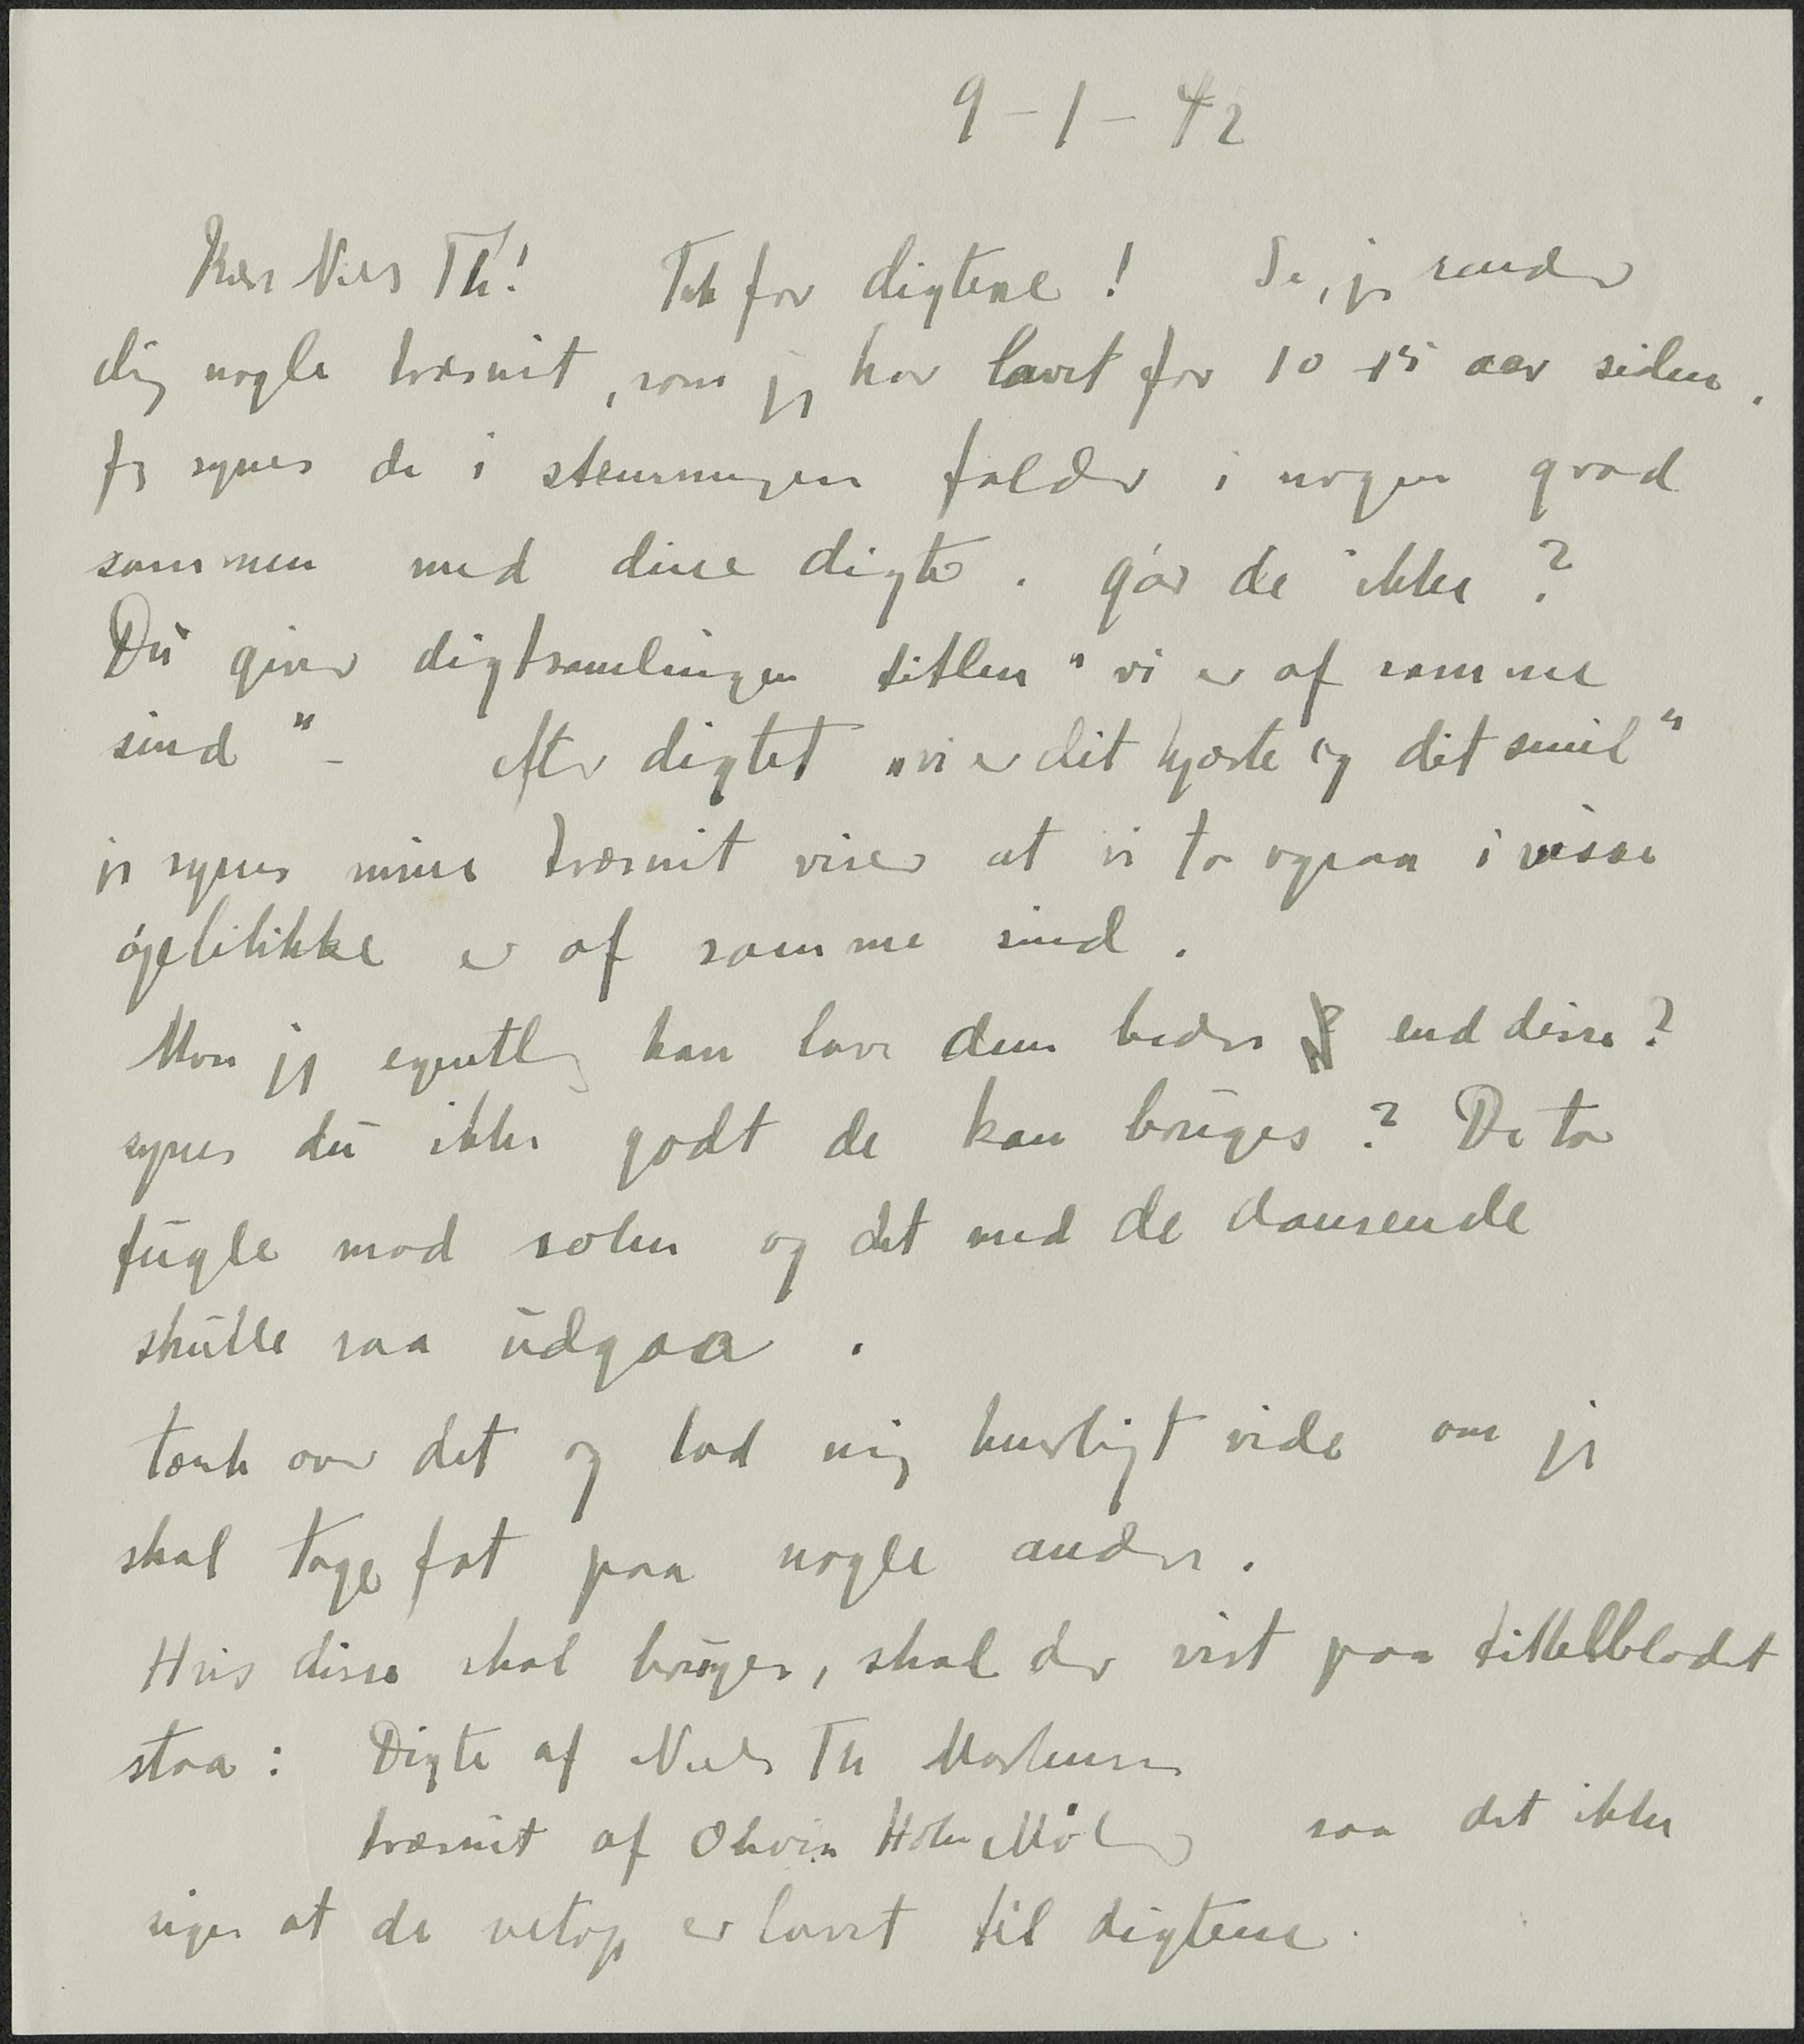 9-1-42
Kær Niels Th! Tak for digtene! Se, jeg sender
dig nogle træsnit, som jeg har lavet for 10-15 aar siden.
Jeg synes de i stemningen falder i nogen grad
sammen med dine digte. gør de ikke?
Du giver digtsamlingen titlen "vi er af samme
sind" - efter digtet "vi er dit hjærte og dit smil"
jeg synes mine træsnit viser at vi to ogsaa i visse
øjeblikke er af samme sind.
Mon jeg egentlig kan lave dem bedre end disse?
synes du ikke godt de kan bruges? De to
fugle mod solen og det med de dansende
skulle saa udgaa.
tænk over det og lad mig hurtigt vide om jeg
skal tage fat paa nogle andre.
Hvis disse skal bruges, skal der vist paa tittelbladet
staa: Digte af Niels Th Mortensen
træsnit af Olivia Holm Møller saa det ikke
siges at de netop er lavet til digtene.